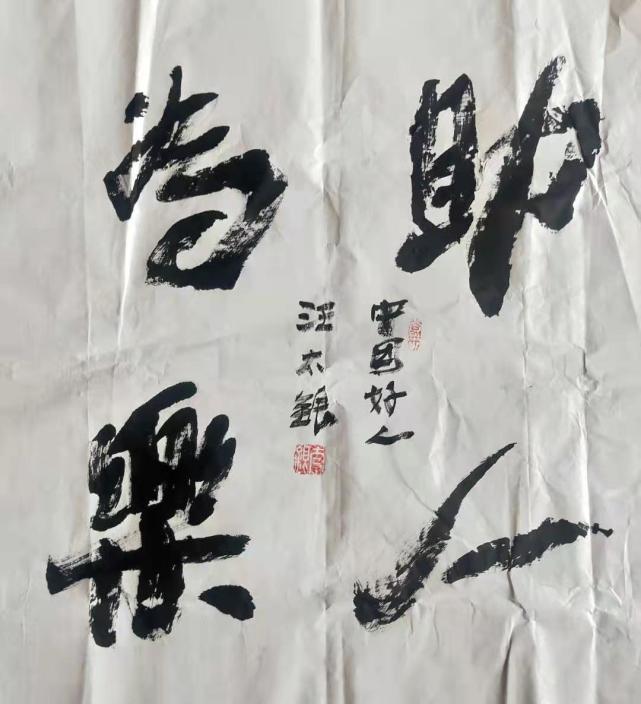 助人
为樂
中国好人
汪太銀